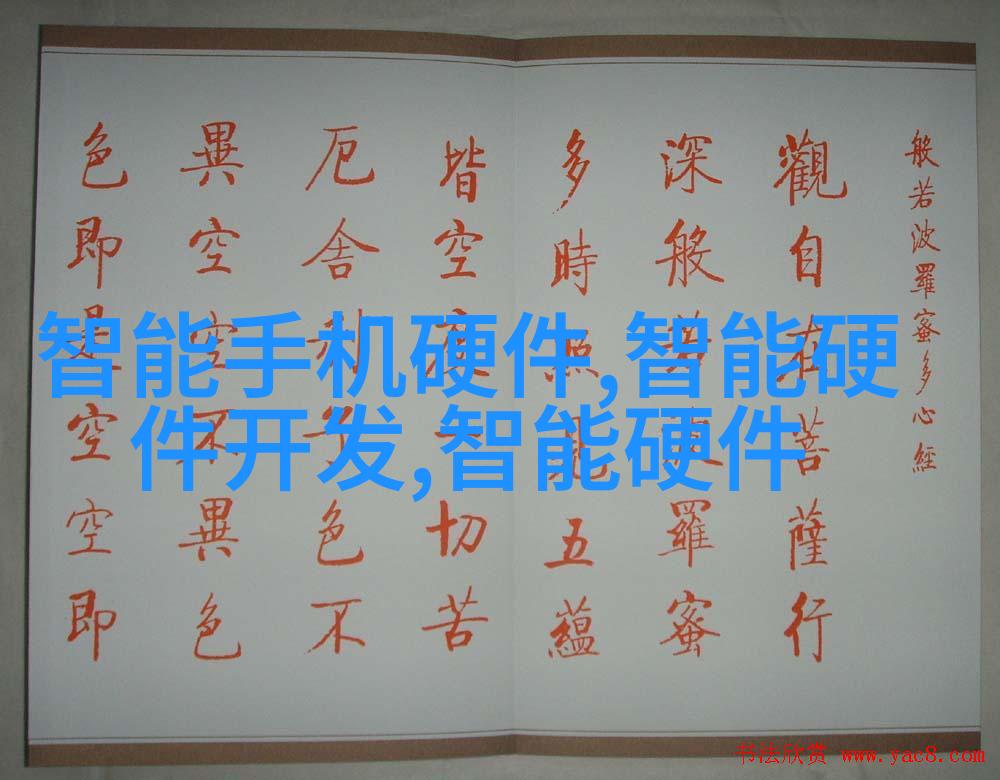 般若波羅蜜多心經
觀自在菩薩行
深般若波羅蜜
多時照見五蘊
皆空度一切苦
厄舍利子色不
異空空不異色
色即是空空即
智能手机硬件,智能硬
件开发,智能硬件
书法欣赏 www.yac8.com